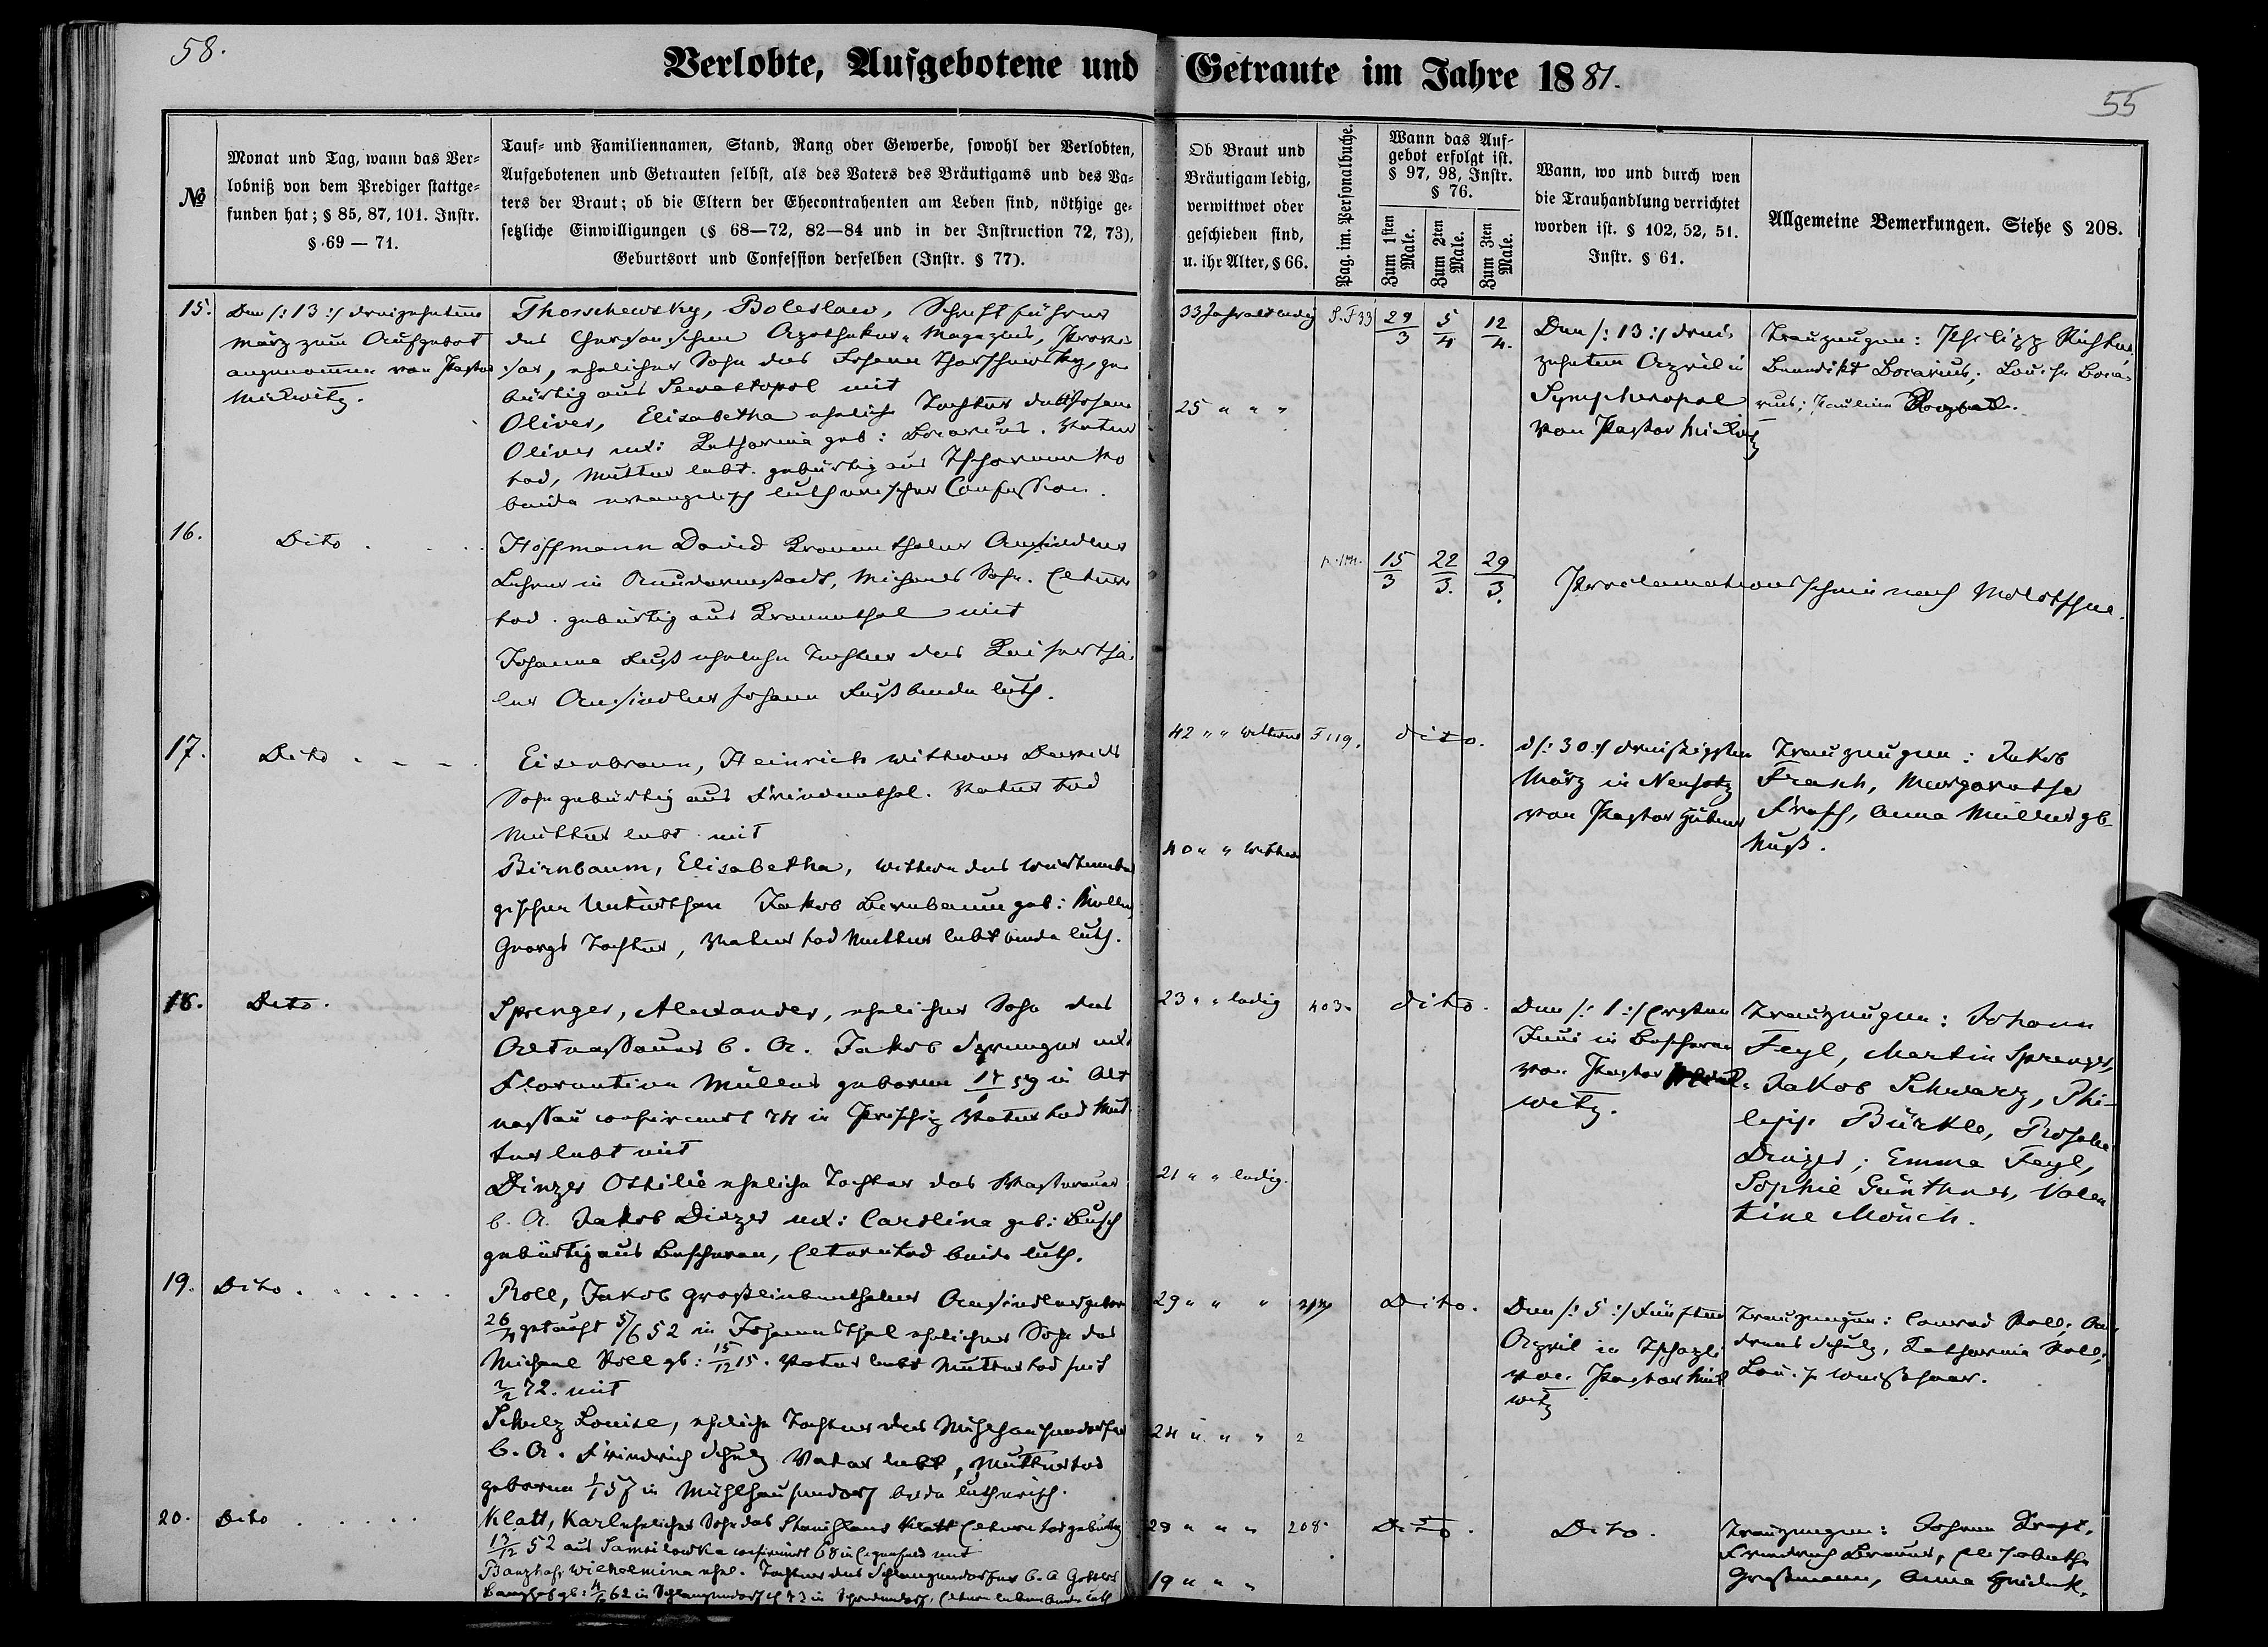 58.
Verlobte, Aufgebotene und Getraute im Jahre 1881.
55
№
Monat und Tag, wann das Ver=
lobniß von dem Prediger stattge=
funden hat; § 85, 87, 101. Instr.
§ 69 — 71.
Tauf= und Familiennamen, Stand, Rang oder Gewerbe, sowohl der Verlobten,
Aufgebotenen und Getrauten selbst, als des Vaters des Bräutigams und des Va=
ters der Braut; ob die Eltern der Ehecontrahenten am Leben sind, nöthige ge=
setzliche Einwilligungen (§ 68—72, 82—84 und in der Instruction 72, 73),
Geburtsort und Confession derselben (Instr. § 77).
Ob Braut und
Bräutigam ledig,
verwittwet oder
geschieden sind,
u. ihr Alter, § 66.
Pag. im. Personalbuche.
Wann das Auf-
gebot erfolgt ist.
§ 97, 98, Instr.
§ 76.
Zum 1sten
Male.
Zum 2ten
Male.
Zum 3ten
Male.
Wann, wo und durch wen
die Trauhandlung verrichtet
worden ist. § 102, 52, 51.
Instr. § 61.
Allgemeine Bemerkungen. Siehe § 208.
15.
Den /: 13 :/ dreizehnten
März zum Aufgebot
angenommen von Pastor
Mickwitz.
Thorschewsky, Boleslaw, Schriftführer
des Chersonschen Apotheker-Magazins,
ehelicher Sohn des Johann Thorschewsky, ge
bürtig aus Sewastopol mit
Oliver, Elisabetha eheliche Tochter des Johann
Oliver ux: Katharina geb: Bocarius. Vater
tod, Mutter lebt. gebürtig aus
beide evangelisch lutherischer Confession.
33 Jahr alt ledig
S.F 33
29/3
5/4
12/4.
25 " " "
Den /: 13 :/ drei
zehnten April in
Sympheropol
von Pastor Mickwitz
Trauzeugen: Philipp Richter,
Benedikt Bocarius; Louise Boca-
rius; Pauline
16.
Dito . . .
Hoffmann David Kronenthaler Ansiedler
Lehrer in Neudarmstadt, Michaels Sohn. Eltern
tod. gebürtig aus Kronenthal mit
Johanna Fuß eheliche Tochter des Kaisertha-
ler Ansiedlers Johann Fuß beide luth.
15/3
22/3.
29/3.
Proclamationsschein nach Molotschna.
17.
Dito . - - .
Eisenbraun, Heinrich Wittwer Davids
Sohn gebürtig aus Friedenthal. Vater tod
Mutter lebt mit
Birnbaum, Elisabetha, Wittwe des Würtember
gischen Unterthan Jakob Birnbaum geb: Müller
Georgs Tochter, Vater tod Mutter lebt beide luth.
42 " " Wittwer
F 119.
dito.
40 " " Wittwe
d/: 30 :/ dreißigsten
März in Neusatz
von Pastor Hübner
Trauzeugen: Jakob
Frasch, Margaretha
Frasch, Anna Müller gb
Nuß.
18.
Dito.
Sprenger, Alexander, ehelicher Sohn des
Altnassauer b. A. Jakob Sprenger ux.
Florentina Müller geboren 59 in Alt
nassau confirmirt 74 in Prischib Vater tod Mut
ter lebt mit
Dinzer Ottilie eheliche Tochter des Wasserauer
b. A. Jakob Dinzer ux: Carolina geb: Busch
gebürtig aus Boscharan, Eltern tod beide luth.
23 " " ledig
403.
dito.
21 " " ledig.
Den /: 1 :/ Ersten
Juni in Boscharan
von Pastor
witz.
Trauzeugen: Johann
Feyl, Martin Sprenger,
Jakob Schwarz, Phi-
lipp Bürkle, Rosalie
Dinzer; Emma Feyl,
Sophie Günther, Valen
tine Mönch.
19.
Dito . . . . . .
Roll, Jakob Großliebenthaler Ansiedler gebor
26/4 getauft 5/6 52 in Johannsthal ehelicher Sohn des
Michael Roll gb: 15/12 15. Vater lebt Mutter tod seit
2/2 72. mit
Schulz Louise, eheliche Tochter des Mühlhausendorfer
b. A. Friedrich Schulz Vater lebt, Mutter tod
geboren 1/1 57 in Mühlhausendorf beide lutherisch.
29 " " "
Dito.
24 " " "
2
Den /: 5 :/ Fünften
April in Tschapli
von Pastor Mick
witz
Trauzeugen: Conrad Roll; An-
dreas Schulz, Katharina Roll;
Louise Weißhaar.
20.
Dito . . . . .
Klatt, Karl ehelicher Sohn des Stanislaus Klatt Eltern tod gebürtig
13/12 52 aus Samoilowka confirmirt 68 in Eigenfeld mit
Banzhaf Wilhelmina ehel. Tochter des Schlangendorfer b. A Gottlob
Banzhaf gb: 4/6 62 in Schlangendorf, Eltern leben beide luth
28 " " "
208.
Dito.
19 " " "
Dito.
Trauzeugen: Johann Kraft,
Friedrich Braun, Elisabetha
Großmann, Anna